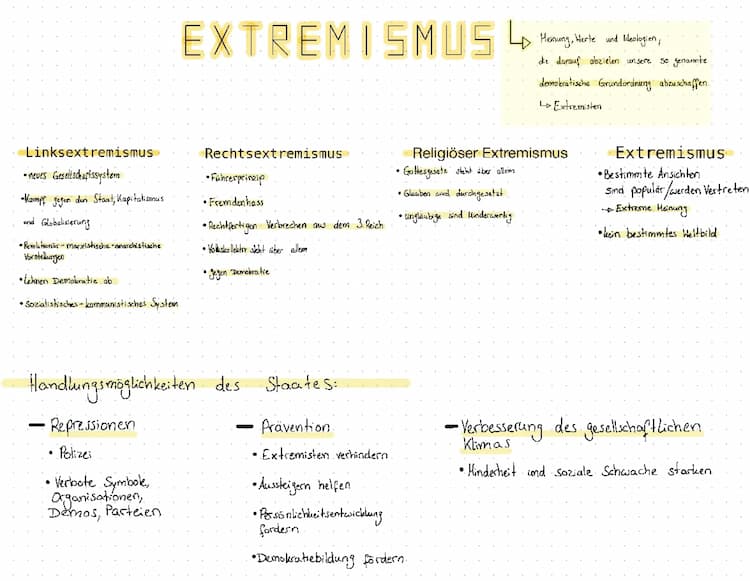 EXTREMISMUS
↳ Meinung, Werte und Ideologien,
die darauf abzielen unsere so genannte
demokratische Grundordnung abzuschaffen
↳ Extremisten
Linksextremismus
• neues Gesellschaftssystem
• Kampf gegen den Staat, Kapitalismus
und Globalisierung
• Revolutionär-marxistische-anarchistische
Vorstellungen
• Lehnen Demokratie ab
• Sozialistisches-kommunistisches System
Rechtsextremismus
• Führerprinzip
• Fremdenhass
• Rechtfertigen Verbrechen aus dem 3. Reich
• steht über allem
• gegen Demokratie
Religiöser Extremismus
• Gottesgesetz steht über allem
• Glauben wird durchgesetzt
• ungläubige sind
Extremismus
• Bestimmte Ansichten
sind populär/werden Vertreten
→ Extreme Meinung
• kein bestimmtes Weltbild
Handlungsmöglichkeiten des Staates:
– Repressionen
• Polizei
• Verbote Symbole,
Organisationen,
Demos, Parteien
– Prävention
• Extremisten verhindern
• Aussteigern helfen
• Persönlichkeitsentwicklung
fördern
• Demokratiebildung fördern
– Verbesserung des gesellschaftlichen
Klimas
• Minderheit und soziale Schwache stärken